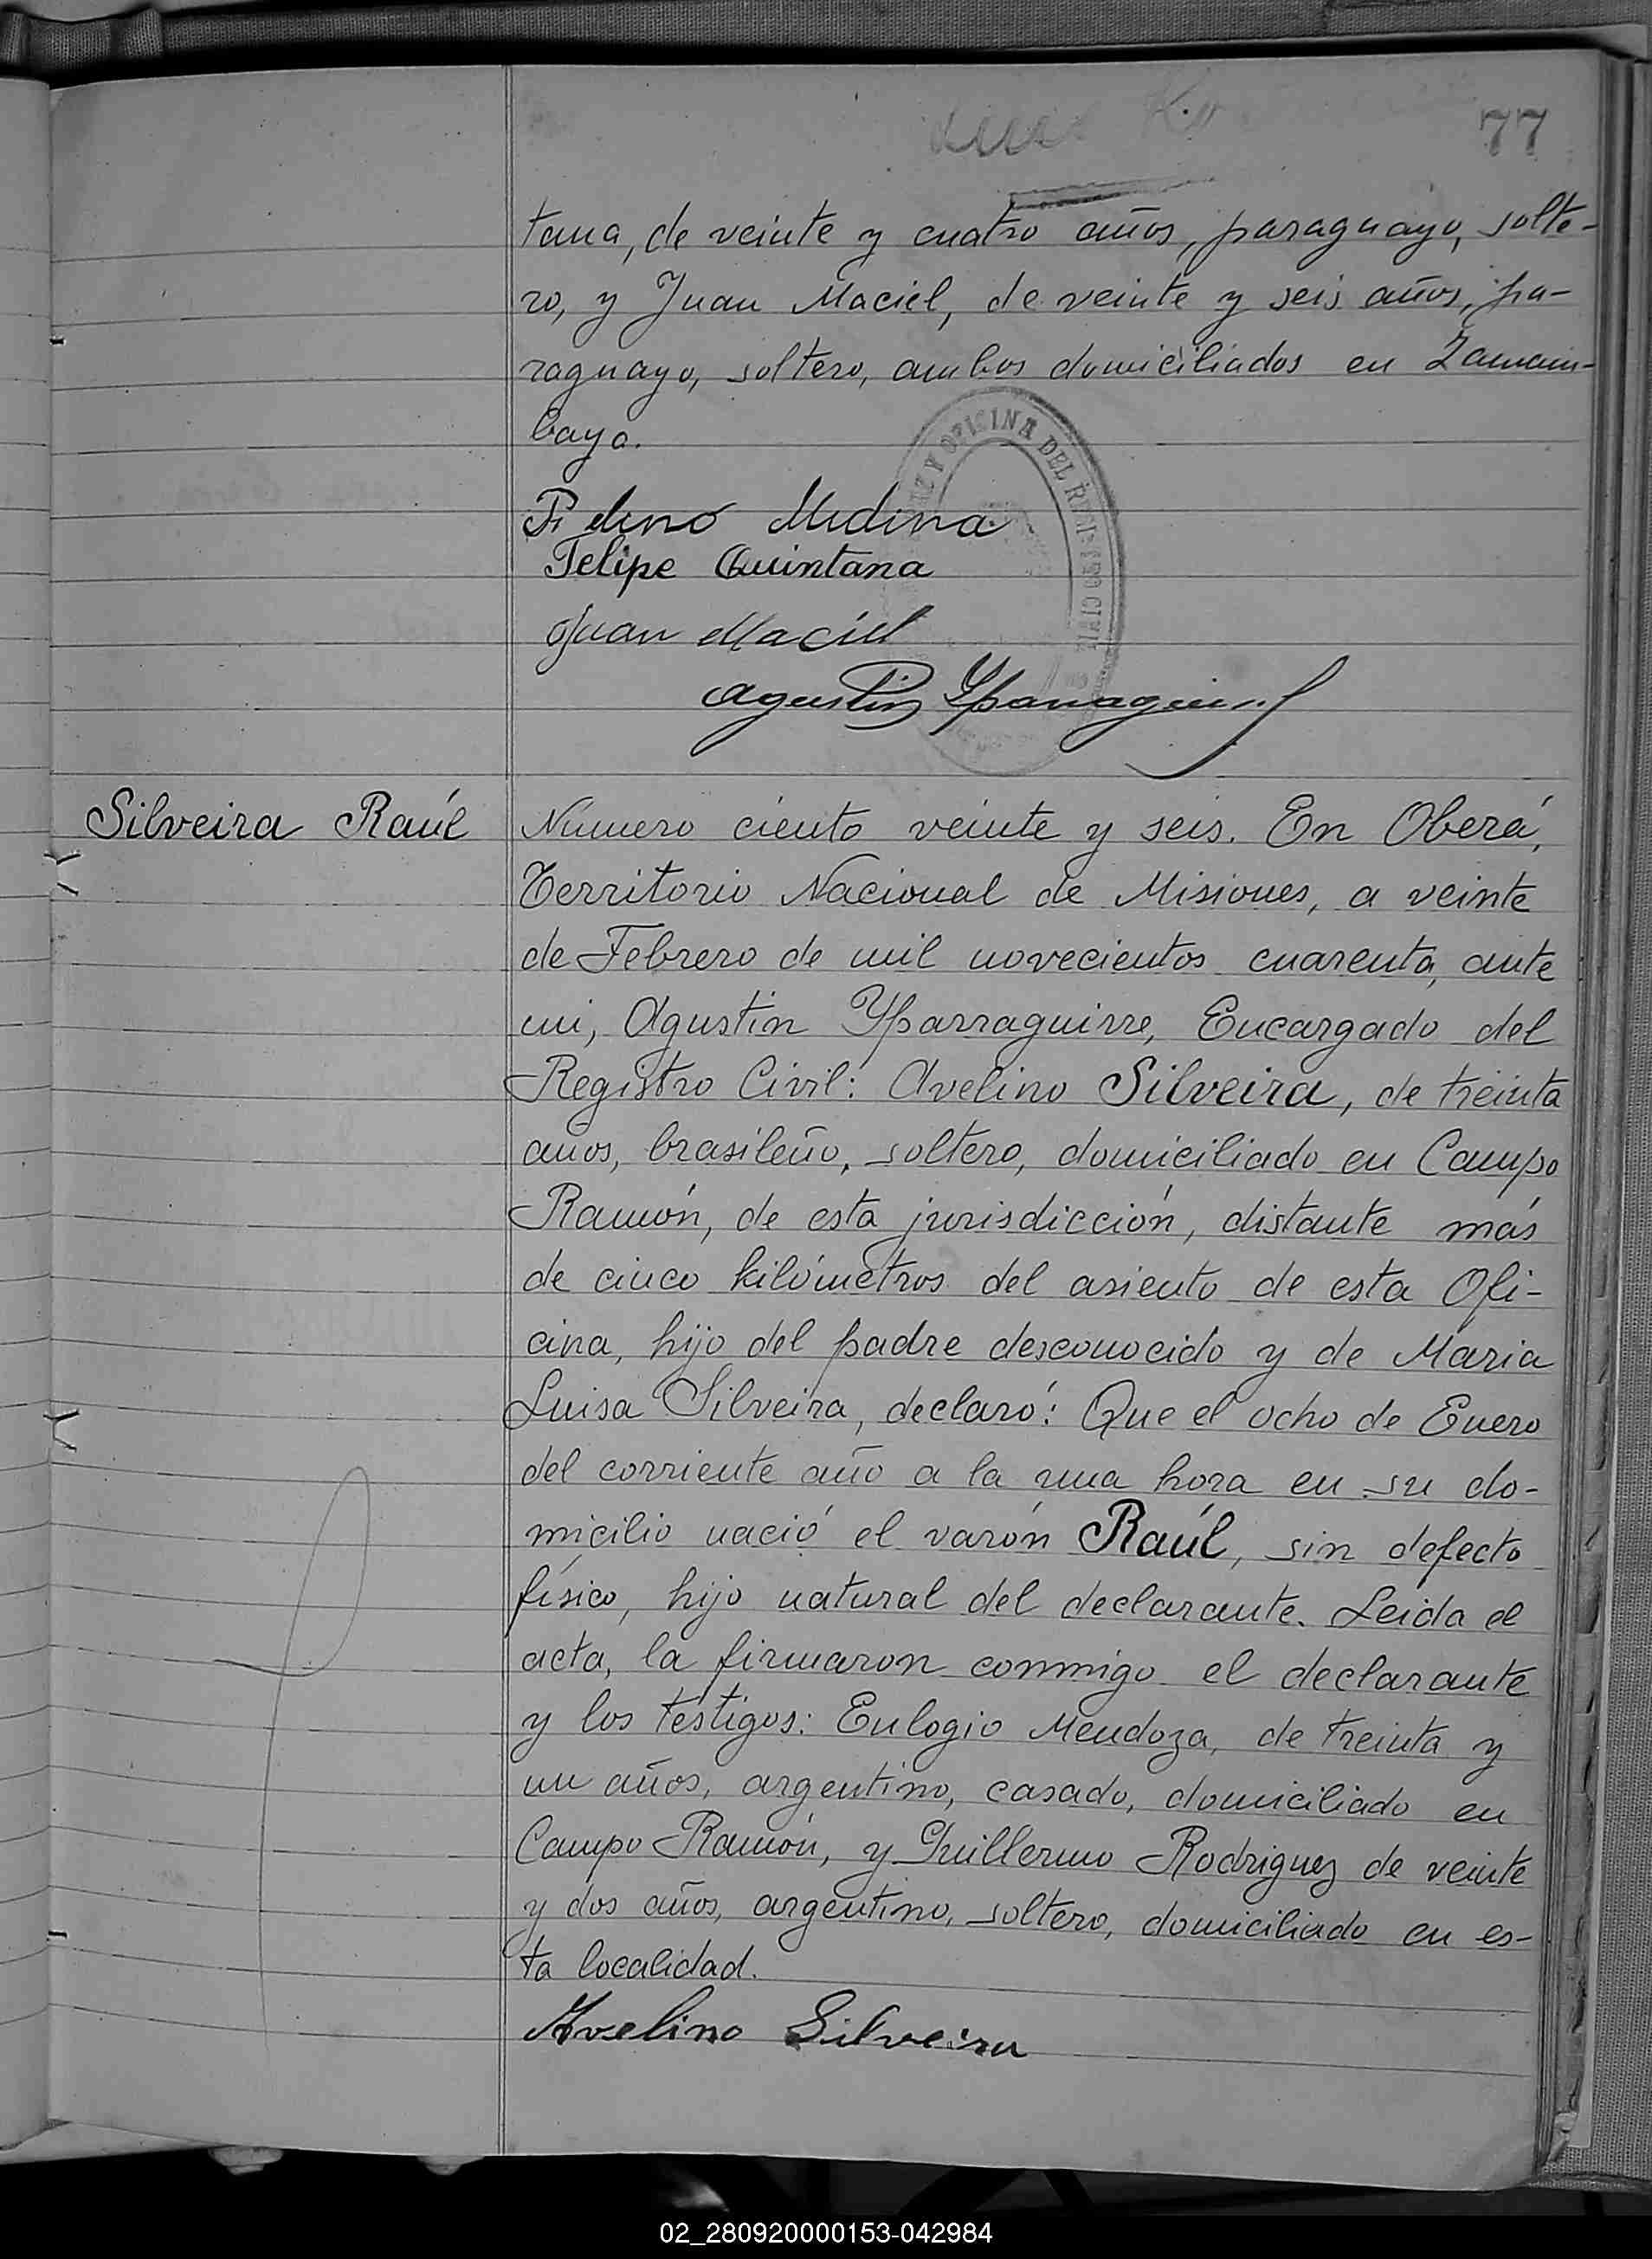 77
tana, de veinte y cuatro años, paraguayo, solte-
ro, y Juan Maciel, de veinte y seis años, pa-
raguayo, soltero, ambos domiciliados en Zamam-
baya.
OFICINA DEL REGISTRO CIVIL
Medina
Felipe Quintana
Juan Maciel
Agustin Yparraguirre
Silveira Raúl
Número ciento veinte y seis. En Oberá,
Territorio Nacional de Misiones, a veinte
de Febrero de mil novecientos cuarenta, ante
mi, Agustin Yparraguirre, Encargado del
Registro Civil: Avelino Silveira, de treinta
años, brasileño, soltero, domiciliado en Campo
Ramón, de esta jurisdicción, distante más
de cinco kilómetros del asiento de esta Ofi-
cina, hijo del padre desconocido y de Maria
Luisa Silveira, declaró: Que el ocho de Enero
del corriente año a la una hora en su do-
micilio nació el varón Raúl, sin defecto
físico, hijo natural del declarante. Leida el
acta, la firmaron conmigo el declarante
y los testigos: Eulogio Mendoza, de treinta y
un años, argentino, casado, domiciliado en
Campo Ramón, y Guillermo Rodriguez de veinte
y dos años, argentino, soltero, domiciliado en es-
ta localidad.
Avelino Silveira
02_280920000153-042984